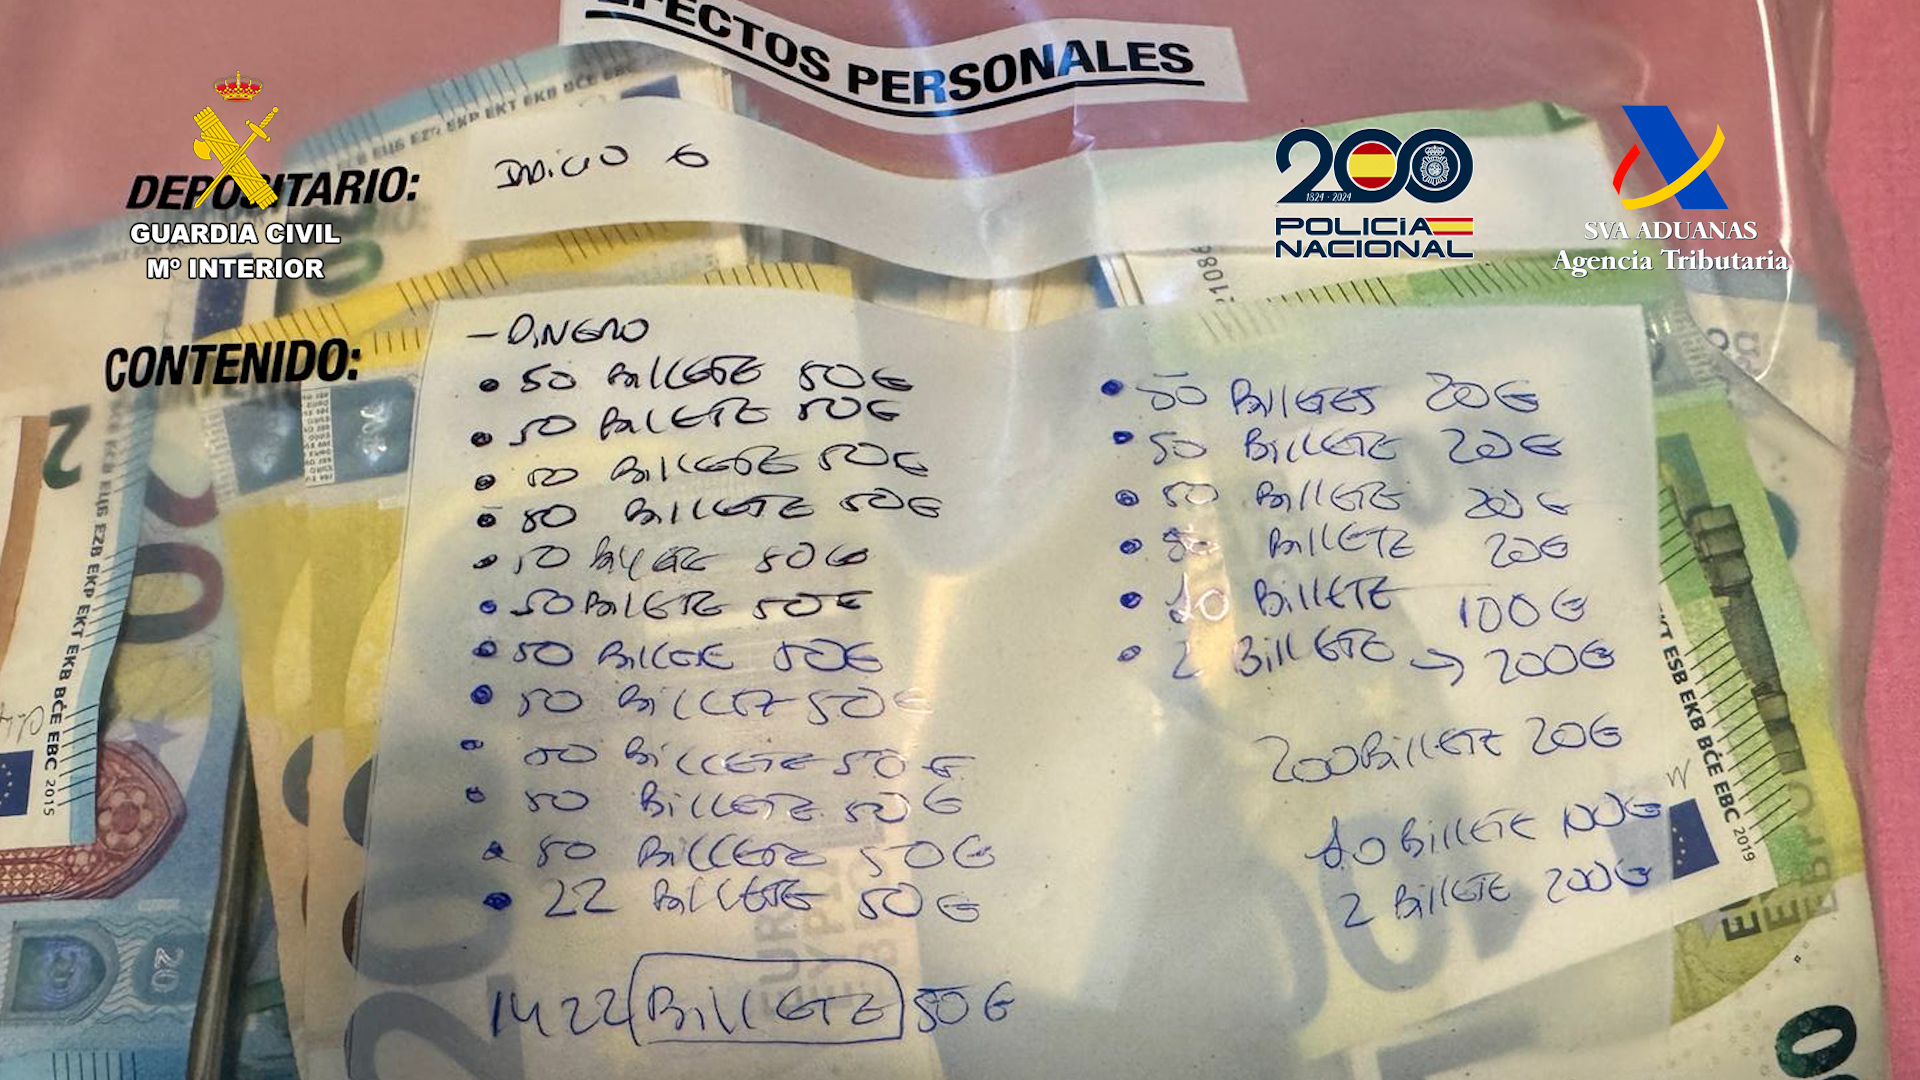 EFECTOS PERSONALES
DEPOSITARIO:
INDICIO 6
GUARDIA CIVIL
Mº INTERIOR
200
1824 - 2024
POLICÍA
NACIONAL
SVA ADUANAS
Agencia Tributaria
CONTENIDO:
- DINERO
• 50 BILLETE 50€
• 50 BILLETE 50€
• 50 BILLETE 50€
• 50 BILLETE 50€
• 50 BILLETE 50€
• 50 BILLETE 50€
• 50 BILLETE 50€
• 50 BILLETE 50€
• 50 BILLETE 50€
• 50 BILLETE 50€
• 50 BILLETE 50€
• 22 BILLETE 50€
1422 BILLETE 50€
• 50 BILLETES 20€
• 50 BILLETE 20€
• 50 BILLETE 20€
• 50 BILLETE 20€
• 10 BILLETE 100€
• 2 BILLETE → 200€
200 BILLETE 20€
10 BILLETE 100€
2 BILLETE 200€
EKP EKT EKB BČE EBC
EZB EKP EKT EKB BČE EBC 2015
20
EKT ESB EKB BČE EBC 2019